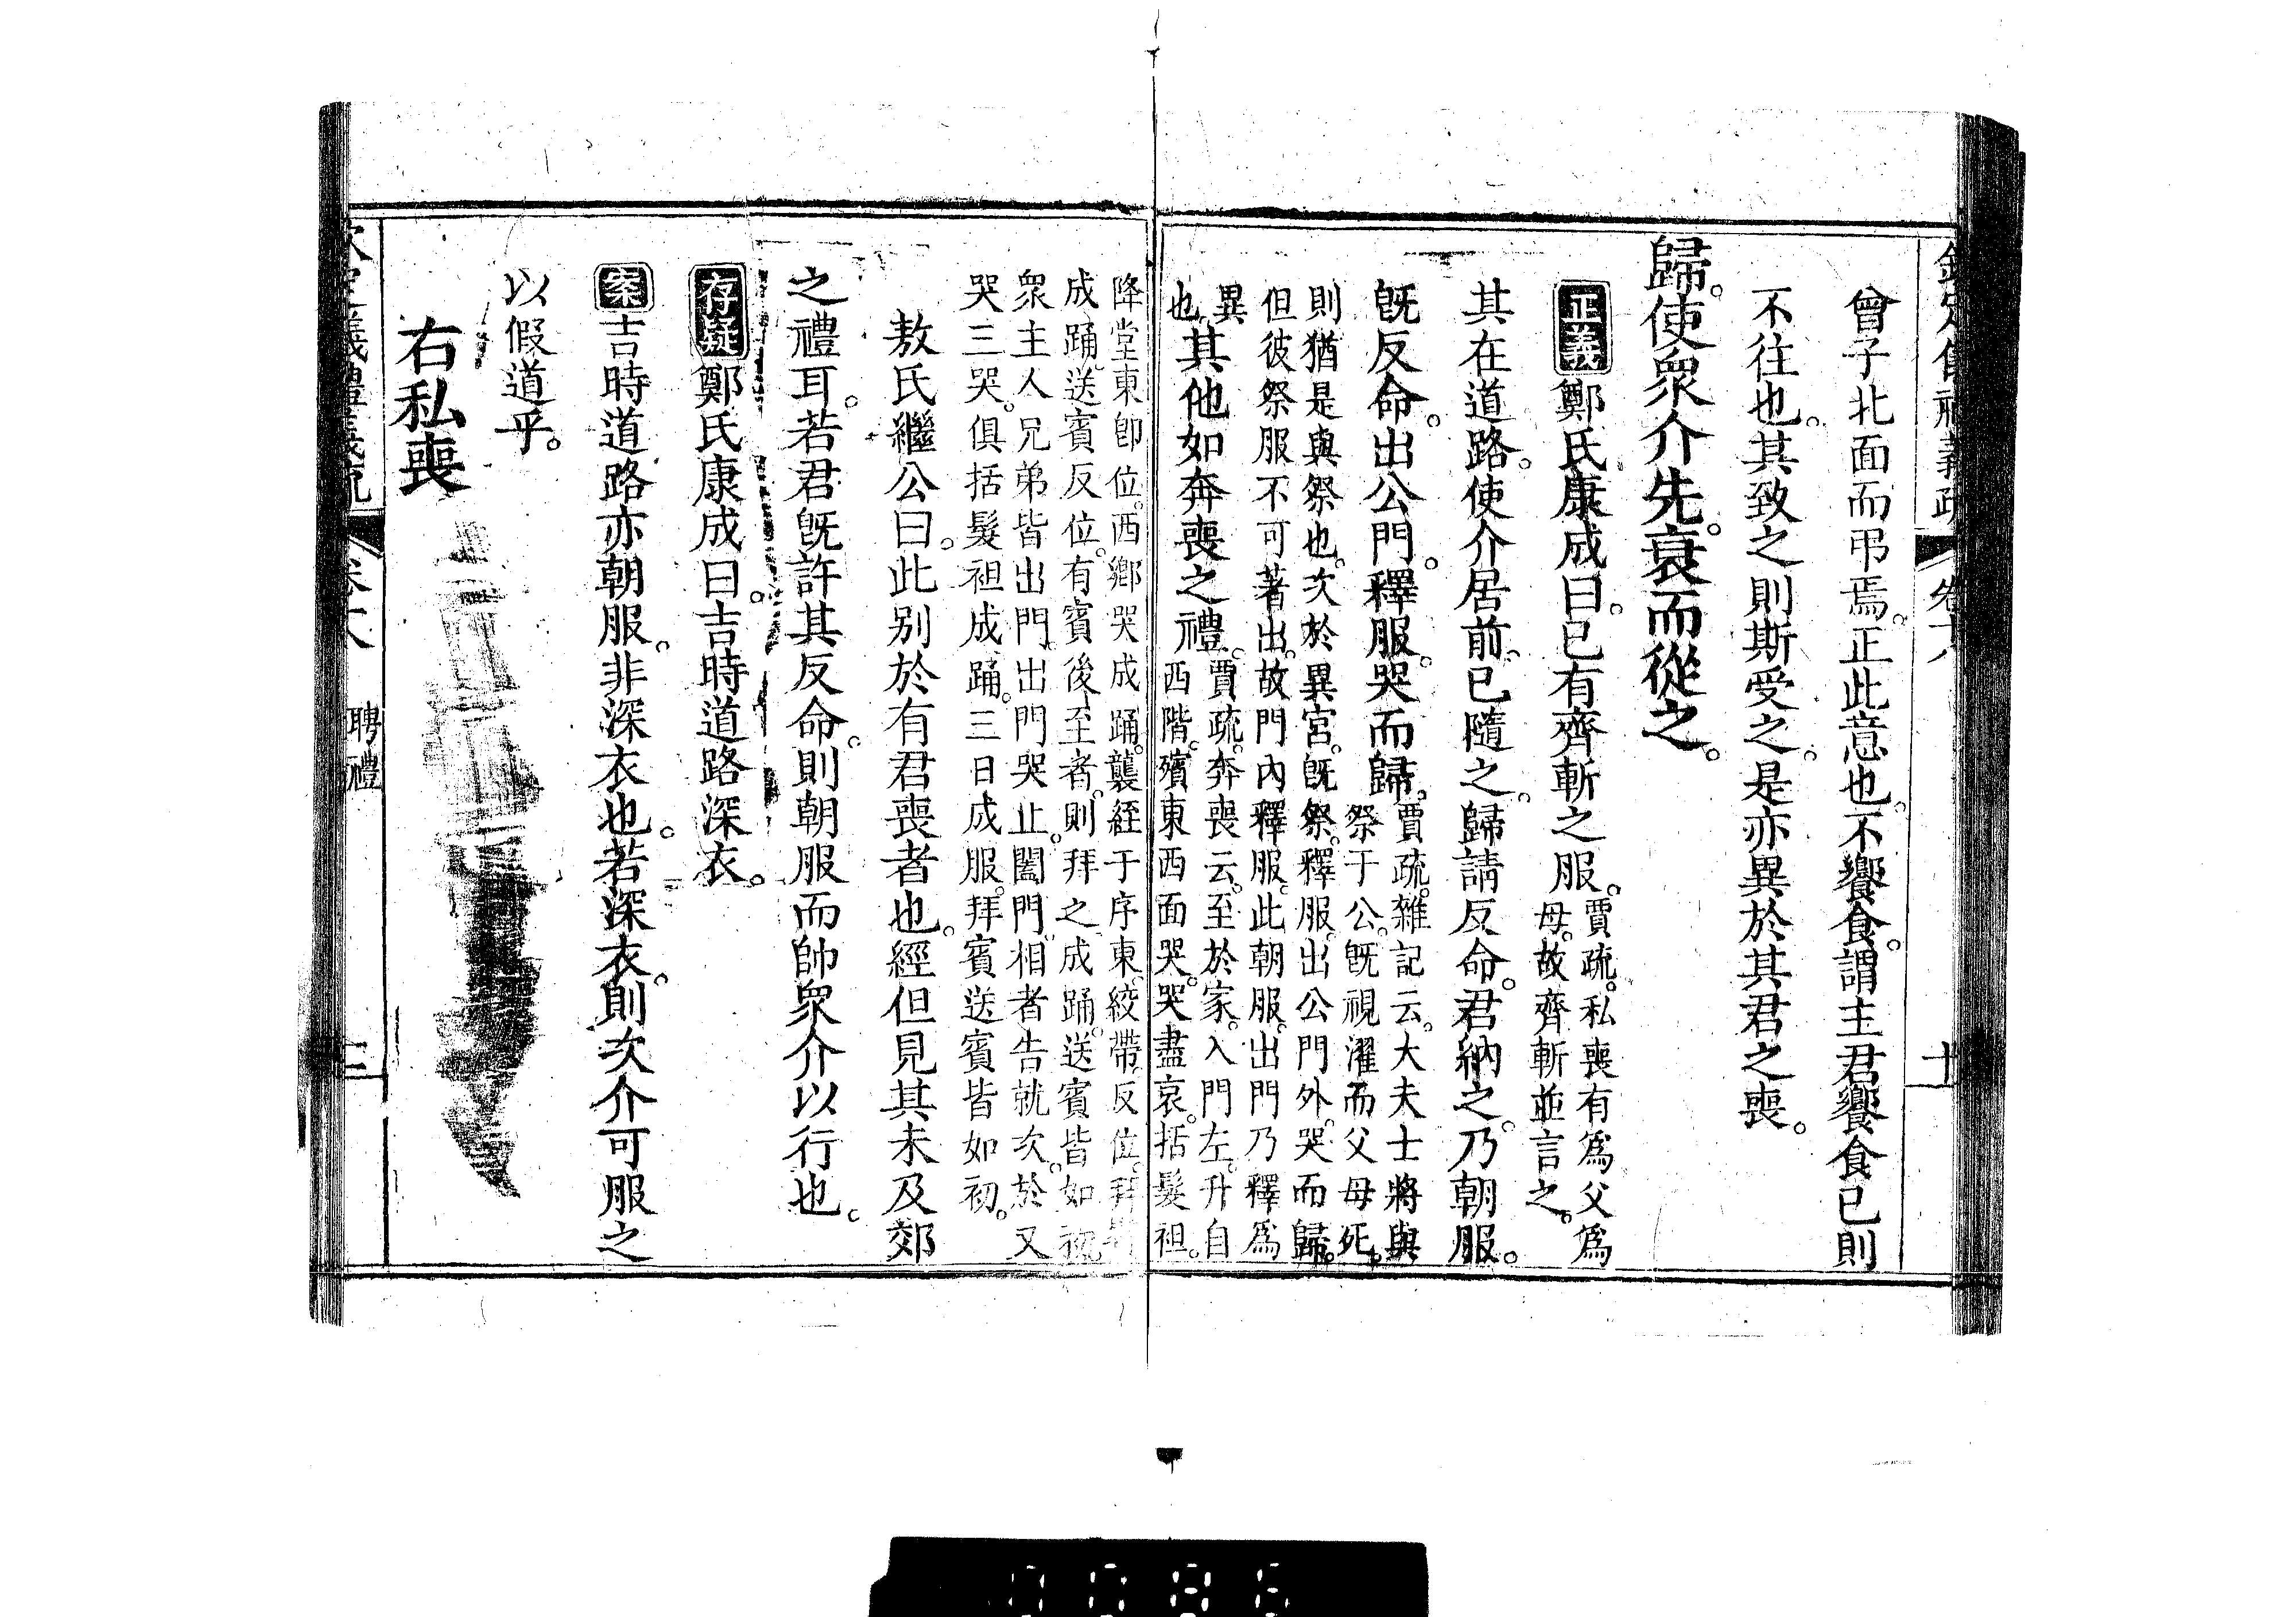 曾子北面而弔焉。正此意也。不饗食。謂主君饗食已則
不往也。其致之則斯受之。是亦異於其君之喪。
歸。使衆介先。衰而從之。
正義鄭氏康成曰。已有齊斬之服。賈疏。私喪有爲父爲
母。故齊斬並言之。
其在道路。使介居前。已隨之。歸請反命。君納之。乃朝服。
旣反命。出公門。釋服。哭而歸。賈疏。雜記云。大夫士將與
祭于公。旣視濯而父母死。
則猶是與祭也。次於異宮。旣祭。釋服。出公門外。哭而歸。
但彼祭服不可著出。故門內釋服。此朝服。出門乃釋爲
異
也。其他如奔喪之禮。賈疏。奔喪云。至於家。入門左。升自
西階。殯東西面哭。哭盡哀。括髮袒。
降堂東卽位。西鄉哭成踊。襲絰于序東。絞帶反位。拜
成踊。送賓反位。有賓後至者。則拜之成踊。送賓皆如初。
衆主人兄弟皆出門。出門哭止。闔門。相者告就次。於又
哭三哭。俱括髮袒成踊。三日成服。拜賓送賓皆如初。
敖氏繼公曰。此別於有君喪者也。經但見其未及郊
之禮耳。若君旣許其反命。則朝服而帥衆介以行也。
存疑鄭氏康成曰。吉時道路深衣。
案吉時道路亦朝服。非深衣也。若深衣。則次介可服之
以假道乎。
右私喪
聘禮